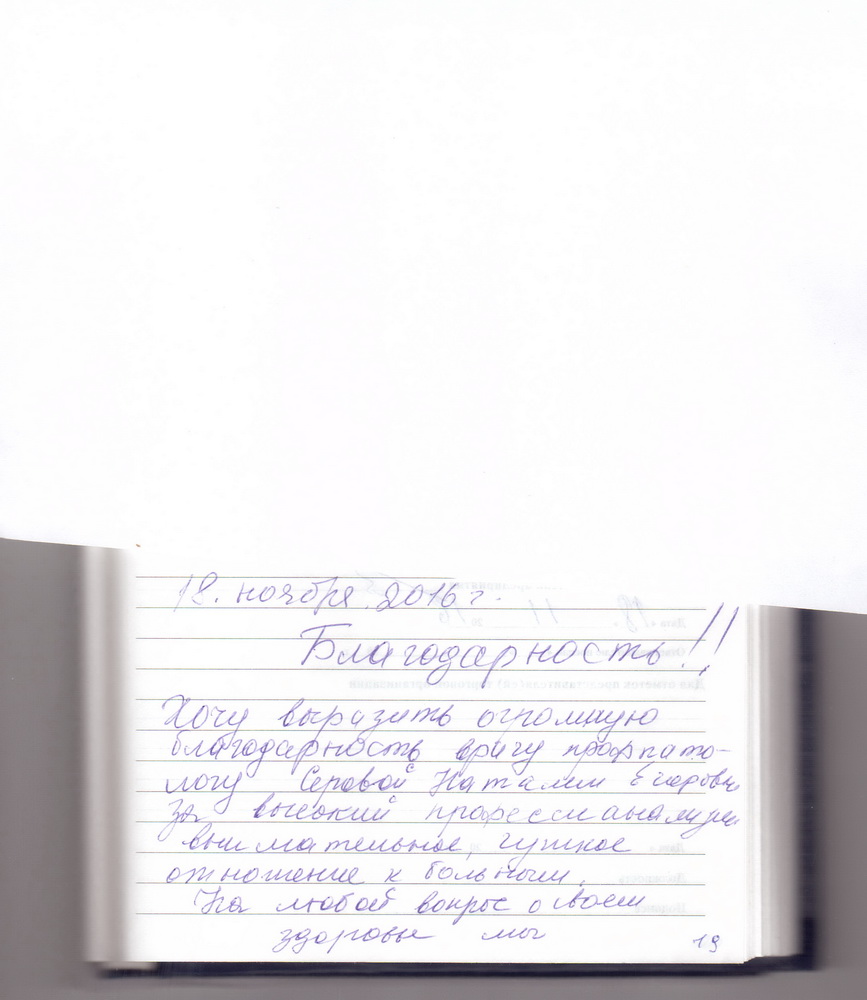 18. ноября 2016 г.
Благодарность!!
Хочу выразить огромную
благодарность врачу профпато-
логу Серовой Наталии
за высокий профессионализм
внимательное, чуткое
отношение к больным.
На любой вопрос о своем
здоровье мы
19